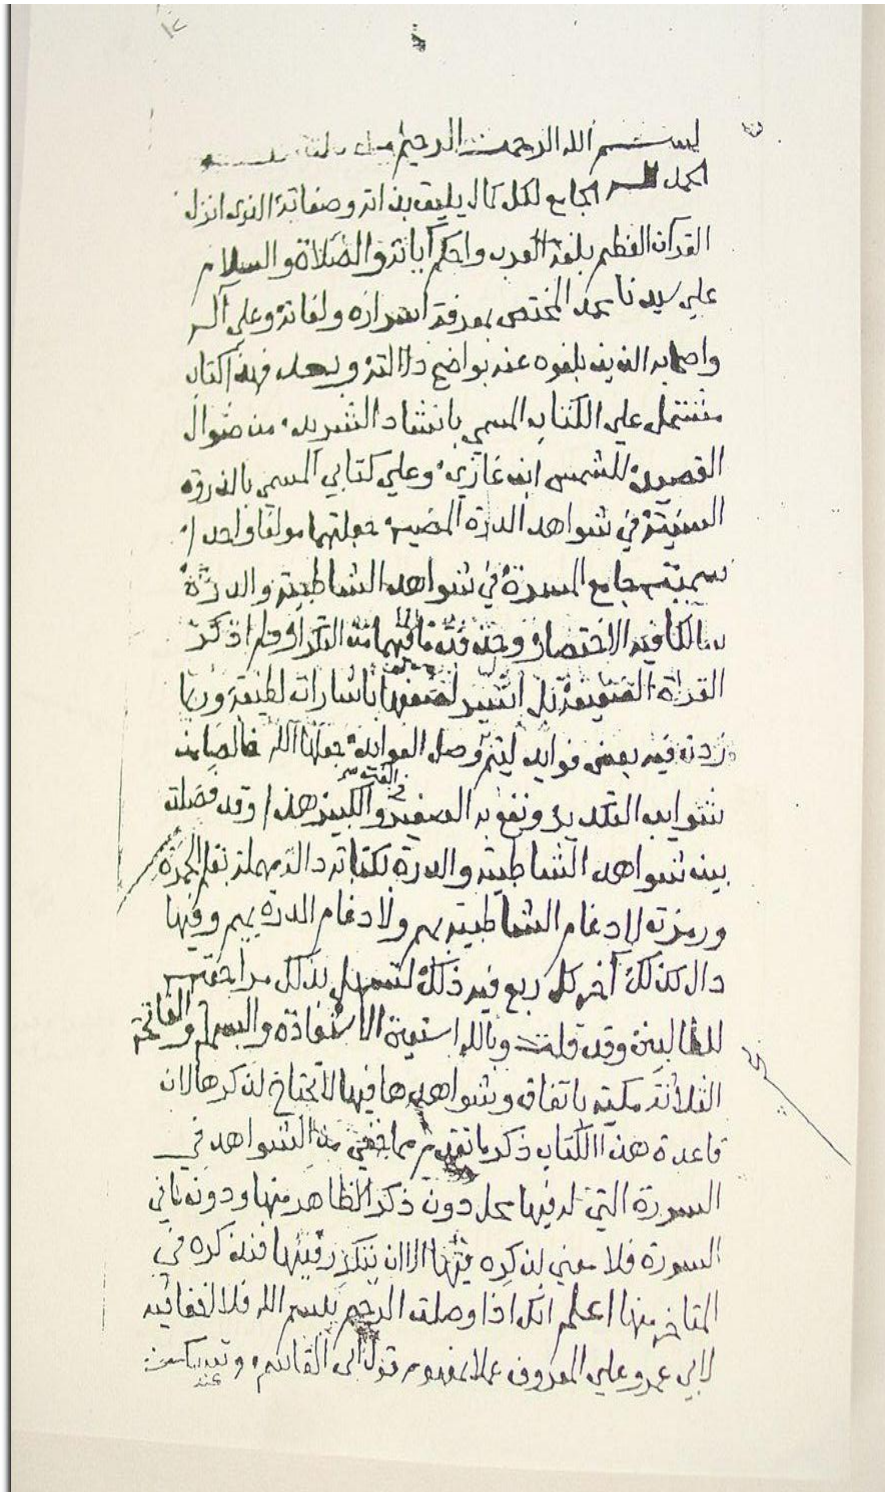 بسم الله الرحمن الرحيم
الحمد لله الجامع لكل كمال يليق بذاته وصفاته الذي انزل
القرآن العظيم بلغة العرب واحكم آياته والصلاة والسلام
على سيدنا محمد المختص بمعرفة اسراره ولغاته وعلى آله
واصحابه الذين بلغوه عنه بواضح دلالته وبعد فهذا كتاب
مشتمل على الكتاب المسمى بانشاد الشريد من ضوال
القصيد للشمس ابن غازي وعلي كتابي المسمي بالذروة
السنية في شواهد الدرة المضية جعلتهما مولفا واحدا
سميته جامع المسرة في شواهد الشاطبية والدرة
سالكا فيه الاختصار وحذفته ما فيهما من التكرار ولم اذكر
القراة الضعيفة بل اشير لضعفها باشارات لطيفة وربما
زدت فيه بعض فوايد ليتم وصل العوايد جعلها الله خالصا من
شوايب التكدير ونفع به الصغير والكبير هذا وقد فصلت
بين شواهد الشاطبية والدرة بكتابة دالة مهملة بقلم الحمرة
ورمزته لادغام الشاطبية بم ولادغام الدرة بميم وفيها
دال كذلك آخر كل ربع فيه ذلك لتسهل بذلك مراجعته
للطالبين وقد قلت وبالله استعين الاستعاذة والبسملة والفاتحة
الثلاثة مكية باتفاق وشواهدها فيها لا تحتاج لذكرها لان
قاعدة هذا الكتاب ذكر ما تقدم مما خفي من الشواهد في
السورة التي له فيها محل دون ذكر الظاهر منها ودون ما في
السورة فلا معني لذكره فيها الا ان يتكرر فيها فنذكره في
المتاخر منها اعلم انك اذا وصلت الرحيم ببسم الله فلا اخفا فيه
لابي عمرو علي المعروف عملا بمفهوم قوله الى القاسم وتسكن
عنه